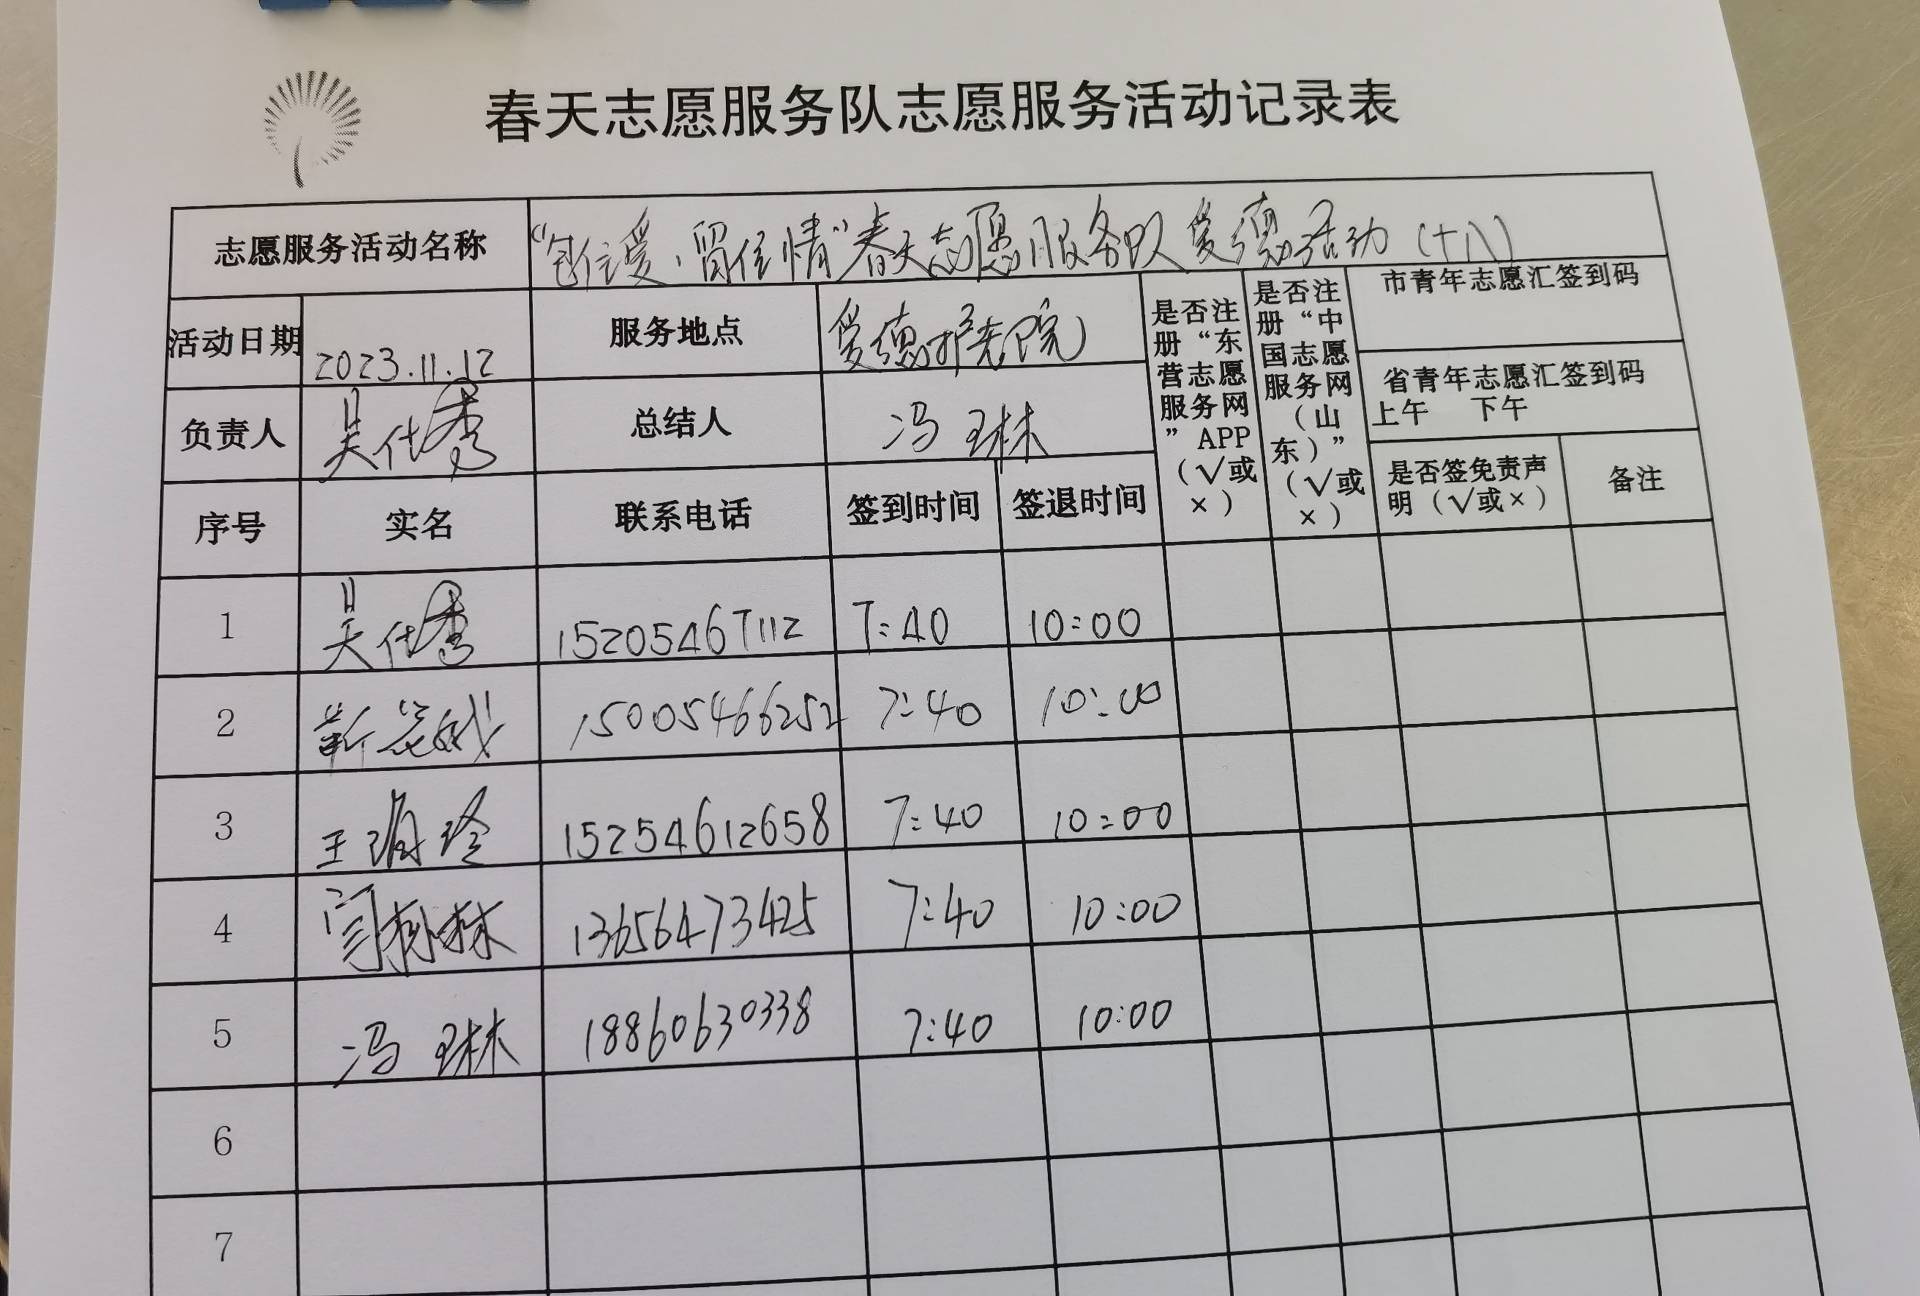 春天志愿服务队志愿服务活动记录表
志愿服务活动名称 “包住爱·留住情”春天志愿服务队爱德活动（十八）
活动日期 2023.11.12 服务地点 爱德护老院
是否注册“东营志愿服务网”APP（√或×）
是否注册“中国志愿服务网（山东）”（√或×）
市青年志愿汇签到码
省青年志愿汇签到码
上午 下午
负责人 吴仕秀 总结人 冯琳
序号 实名 联系电话 签到时间 签退时间 是否签免责声明（√或×） 备注
1 吴仕秀 15205467112 7:40 10:00
2 靳花娥 15005466252 7:40 10:00
3 王娟玲 15254612658 7:40 10:00
4 闫林 13656473425 7:40 10:00
5 冯琳 18860630338 7:40 10:00
6
7